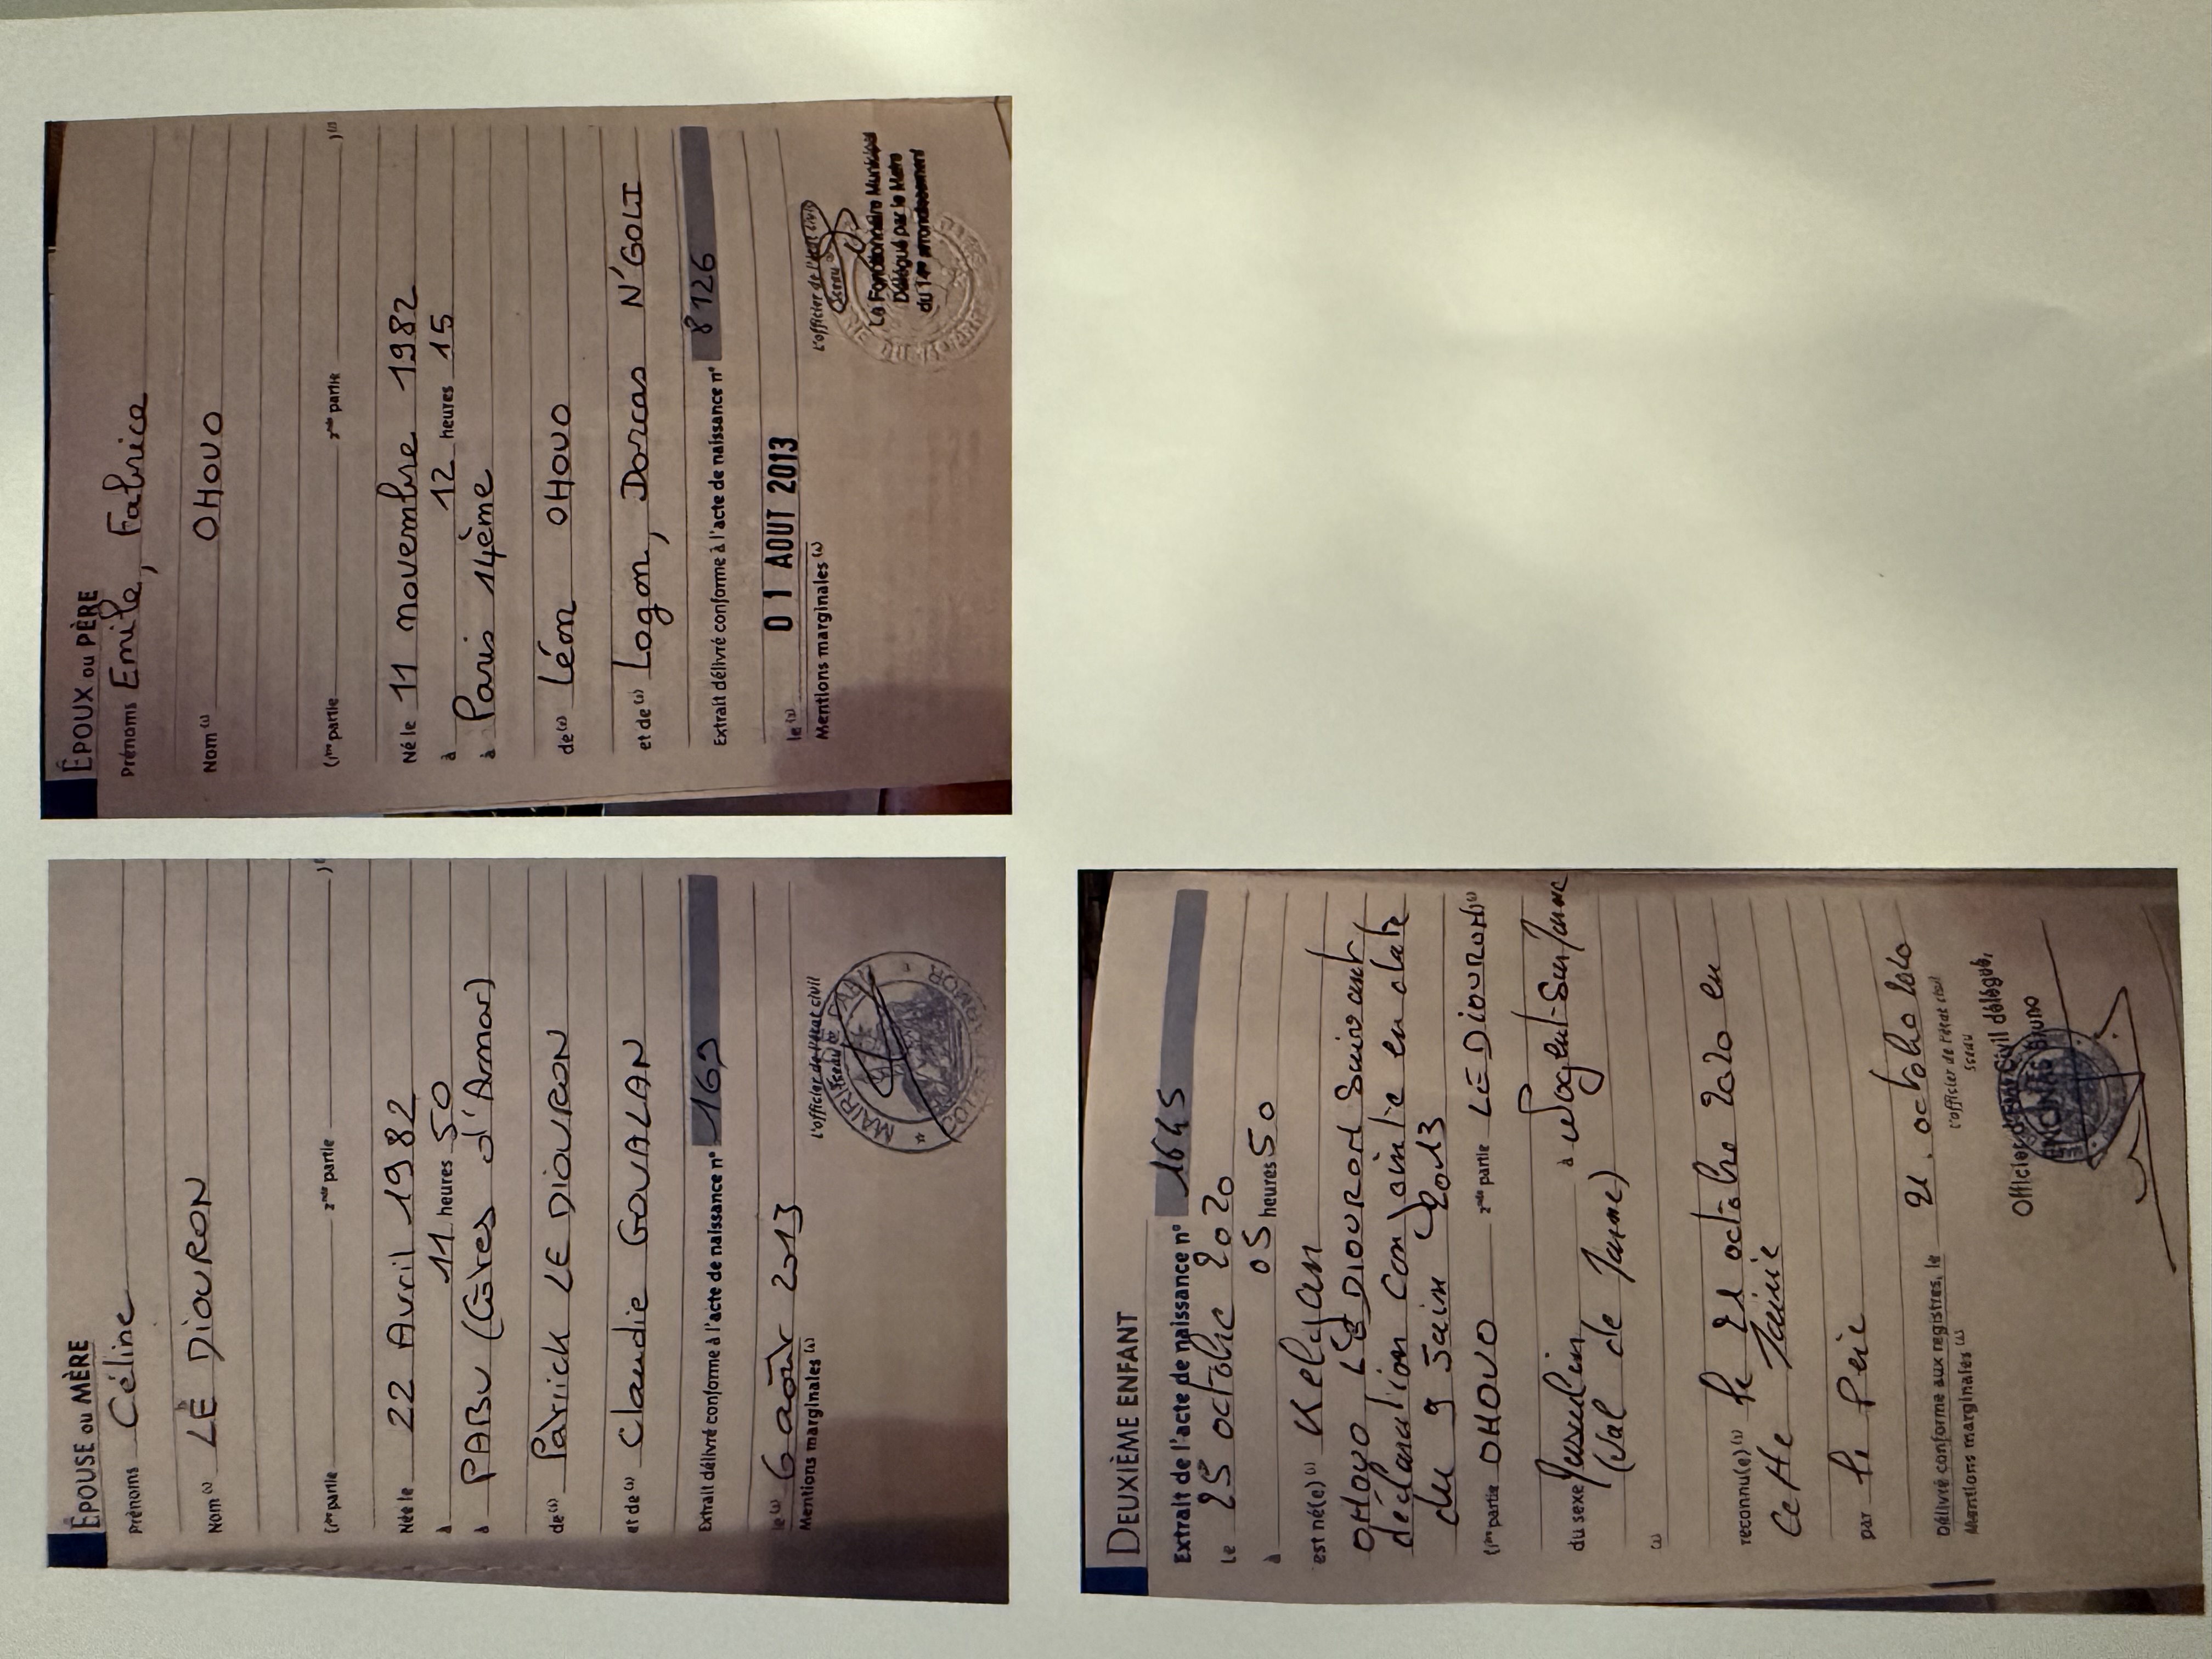 ÉPOUSE ou MÈRE
Prénoms Céline
Nom (1) LE DIOURON
(1ère partie 2nde partie )(1)
Née le 22 Avril 1982
à 11 heures 50
à PABU (Côtes d'Armor)
de (1) Patrick LE DIOURON
et de (1) Claudie GOUALAN
Extrait délivré conforme à l'acte de naissance n° 169
le (1) 6 août 2013
Mentions marginales (1)
L'officier de l'état civil
Sceau
MAIRIE DE PABU
CÔTES D'ARMOR
ÉPOUX ou PÈRE
Prénoms Emile, Fabrice
Nom (1) OHOUO
(1ère partie 2nde partie )(1)
Né le 11 novembre 1982
à 12 heures 15
à Paris 14ème
de (1) Léon OHOUO
et de (1) Logon, Dorcas N'GOLI
Extrait délivré conforme à l'acte de naissance n° 8126
le (1) 01 AOUT 2013
Mentions marginales (1)
L'officier de l'état civil
Sceau
Le Fonctionnaire Municipal
Délégué par le Maire
du 14e arrondissement
DEUXIÈME ENFANT
Extrait de l'acte de naissance n° 1645
Le 25 octobre 2020
à 05 heures 50
est né(e) (1) Kelyan
OHOUO LE DIOURON suivant
déclaration conjointe en date
du 9 Juin 2013
(1ère partie OHOUO 2nde partie LE DIOURON)(1)
du sexe Masculin à Nogent-sur-Marne
(Val de Marne)
reconnu(e) (1) le 21 octobre 2020 en
cette Mairie
par le Père
Délivré conforme aux registres, le 21 octobre 2020
Mentions marginales (1)
L'officier de l'état civil
Sceau
Officier de l'Etat Civil délégué,